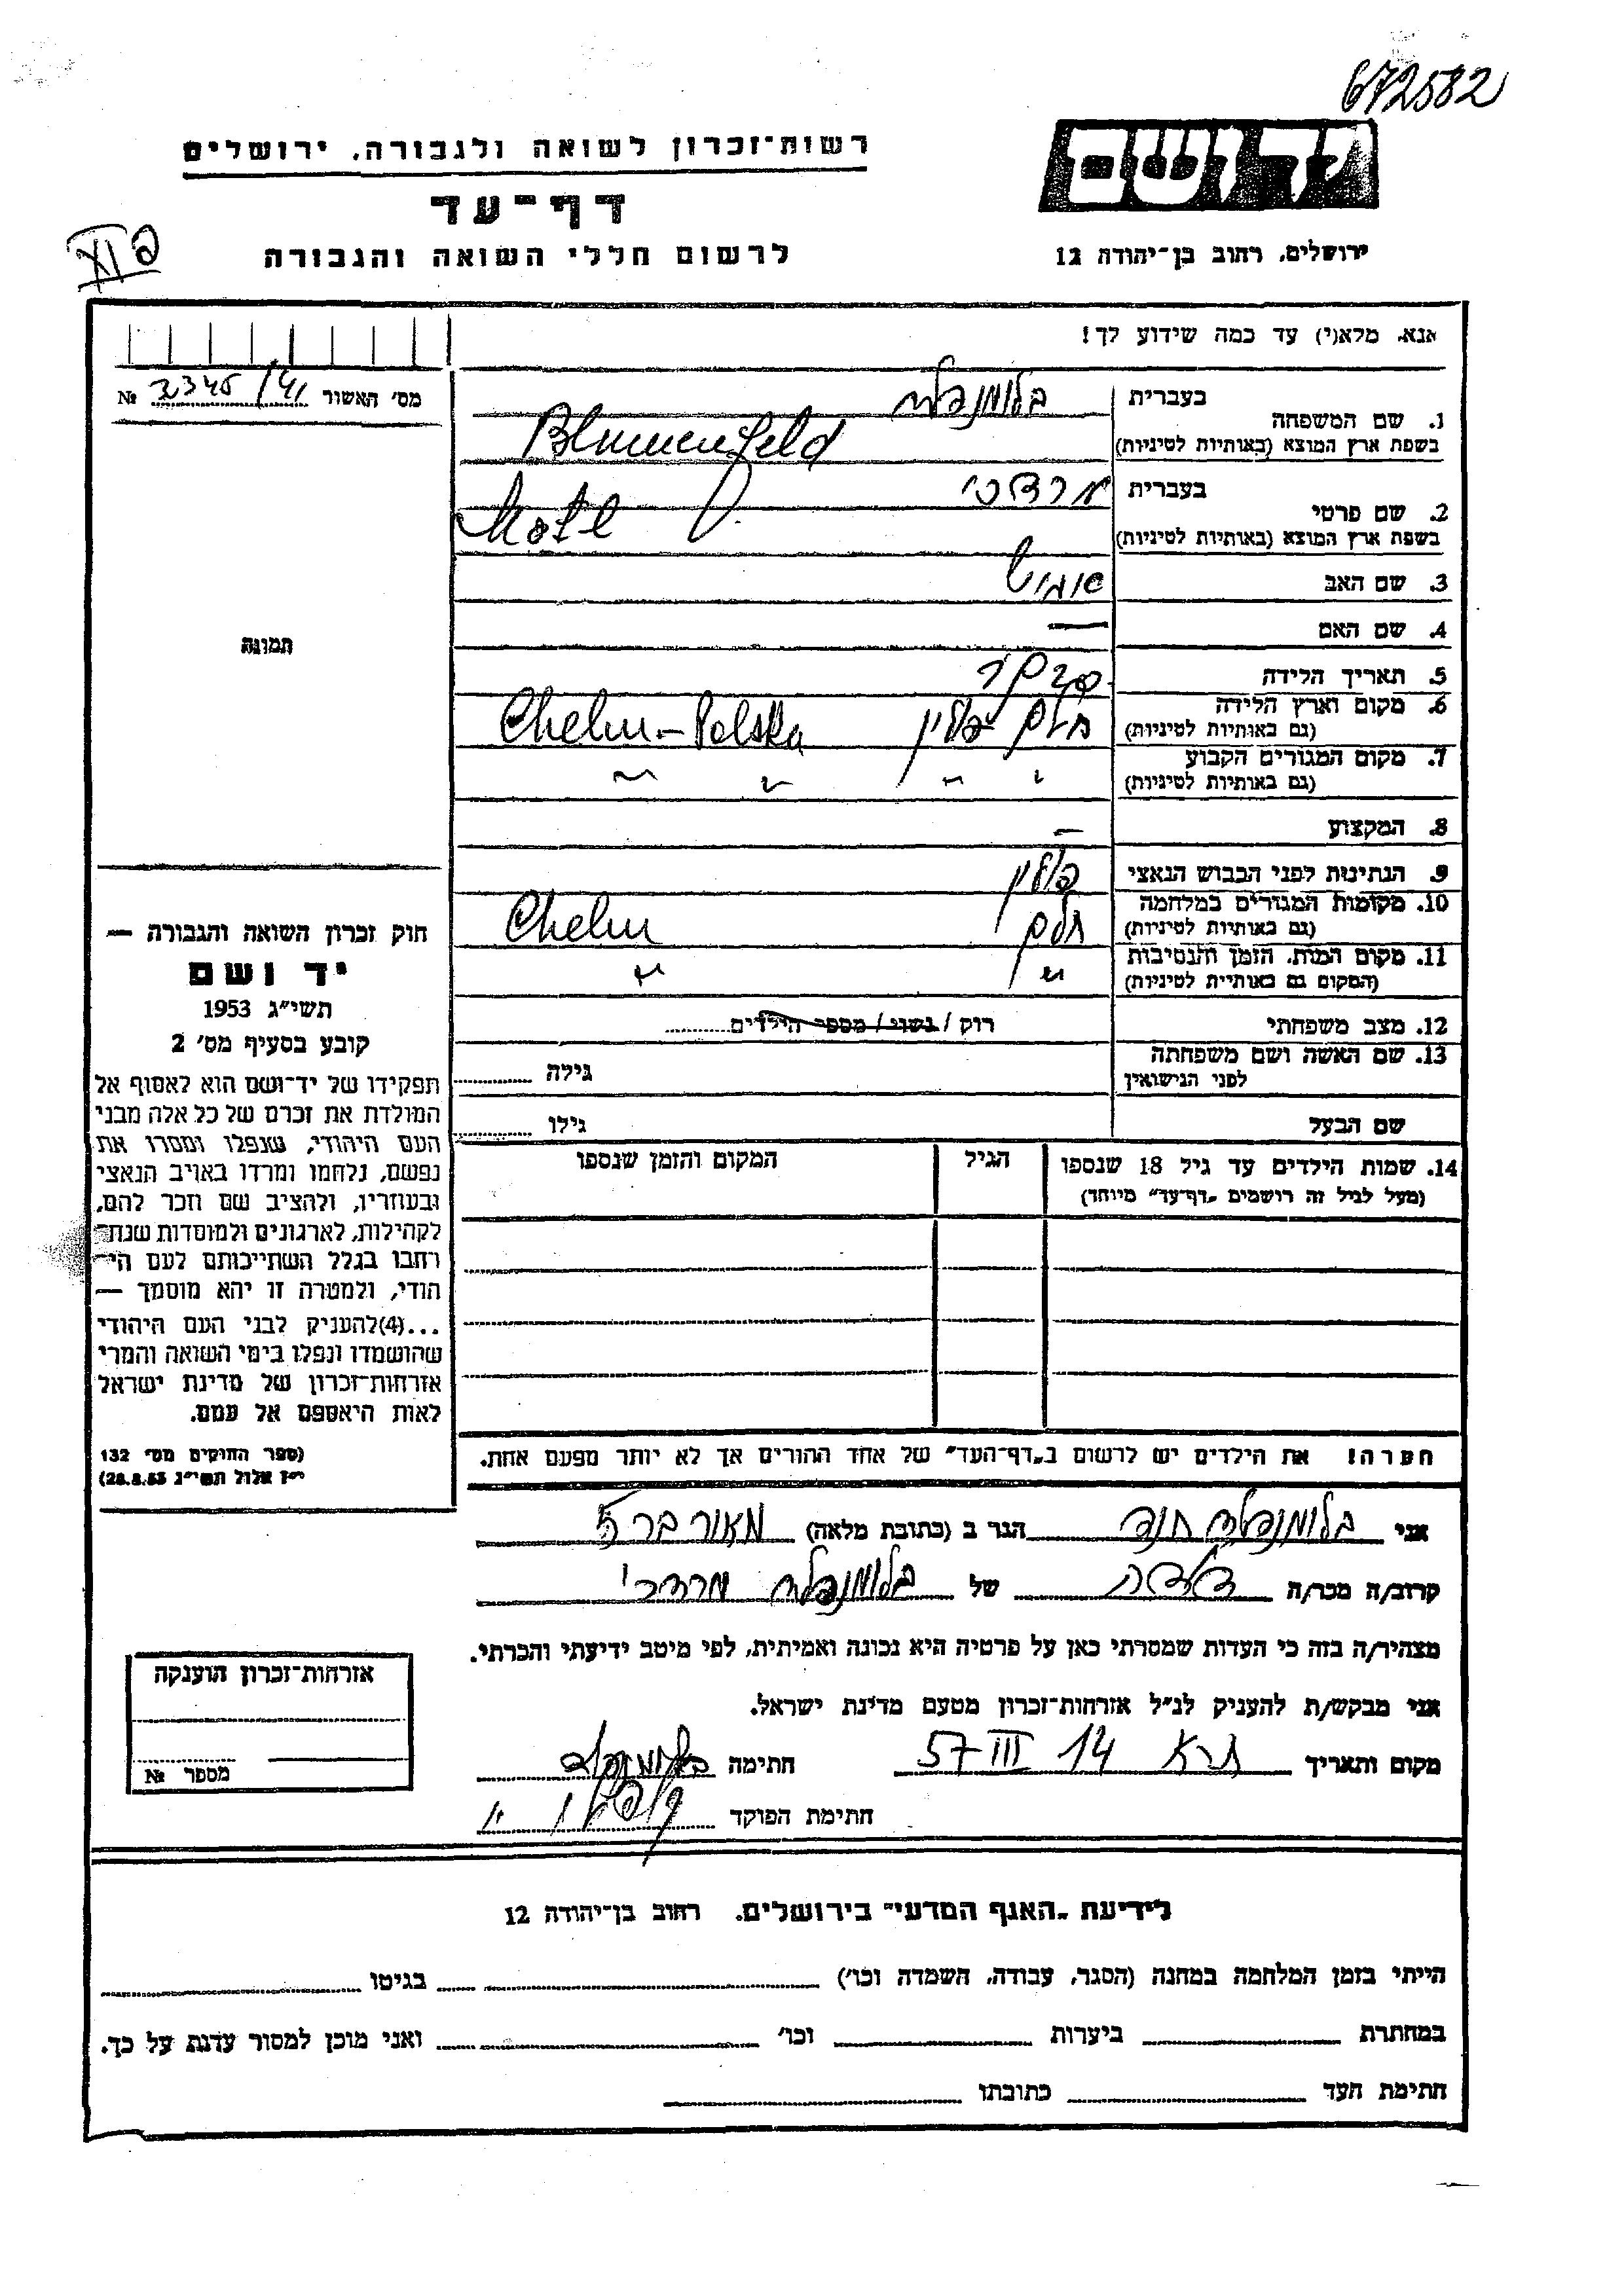 672582
רשות־זכרון לשואה ולגבורה. ירושלים
יד ושם
דף־עד
לרשום חללי השואה והגבורה
ירושלים. רחוב בן־יהודה 12
אנא. מלא(י) עד כמה שידוע לך!
מס' האשור 2345/41 №
1. שם המשפחה בעברית בלומנפלד
בשפת ארץ המוצא (באותיות לטיניות) Blumenfeld
2. שם פרטי בעברית מרדכי
בשפת ארץ המוצא (באותיות לטיניות) Motl
3. שם האב
4. שם האם —
5. תאריך הלידה
6. מקום וארץ הלידה חלם פולין Chelm – Polska
(גם באותיות לטיניות)
7. מקום המגורים הקבוע
(גם באותיות לטיניות)
8. המקצוע —
9. הנתינות לפני הכבוש הנאצי פולין
10. מקומות המגורים במלחמה חלם Chelm
(גם באותיות לטיניות)
11. מקום המות. הזמן והנסיבות
(המקום גם באותיות לטיניות)
12. מצב משפחתי רוק / נשוי / מספר הילדים
13. שם האשה ושם משפחתה גילה
לפני הנישואין
שם הבעל גילו
14. שמות הילדים עד גיל 18 שנספו הגיל המקום והזמן שנספו
(מעל לגיל זה רושמים „דף־עד" מיוחד)
תמונה
חוק זכרון השואה והגבורה —
יד ושם
תשי"ג 1953
קובע בסעיף מס' 2
תפקידו של יד־ושם הוא לאסוף אל
המולדת את זכרם של כל אלה מבני
העם היהודי, שנפלו ומסרו את
נפשם, נלחמו ומרדו באויב הנאצי
ובעוזריו, ולהציב שם וזכר להם,
לקהילות, לארגונים ולמוסדות שנח־
רחבו בגלל השתייכותם לעם הי־
הודי, ולמטרה זו יהא מוסמך —
...(4)להעניק לבני העם היהודי
שהושמדו ונפלו בימי השואה והמרי
אזרחות־זכרון של מדינת ישראל
לאות היאספם אל עמם.
(ספר החוקים מס' 132
י"ז אלול תשי"ג 28.8.53)
הערה! את הילדים יש לרשום ב„דף־העד" של אחד ההורים אך לא יותר מפעם אחת.
אני בלומנפלד הגר ב (כתובת מלאה)
קרוב/ה מכר/ה של בלומנפלד מרדכי
מצהיר/ה בזה כי העדות שמסרתי כאן על פרטיה היא נכונה ואמיתית, לפי מיטב ידיעתי והכרתי.
אני מבקש/ת להעניק לנ"ל אזרחות־זכרון מטעם מדינת ישראל.
מקום ותאריך ת"א 14 III 57 חתימה
חתימת הפוקד
אזרחות־זכרון הוענקה
מספר №
לידיעת „האגף המדעי" בירושלים. רחוב בן־יהודה 12
הייתי בזמן המלחמה במחנה (הסגר, עבודה, השמדה וכו') בגיטו
במחתרת ביערות וכו' ואני מוכן למסור עדות על כך.
חתימת העד כתובתו